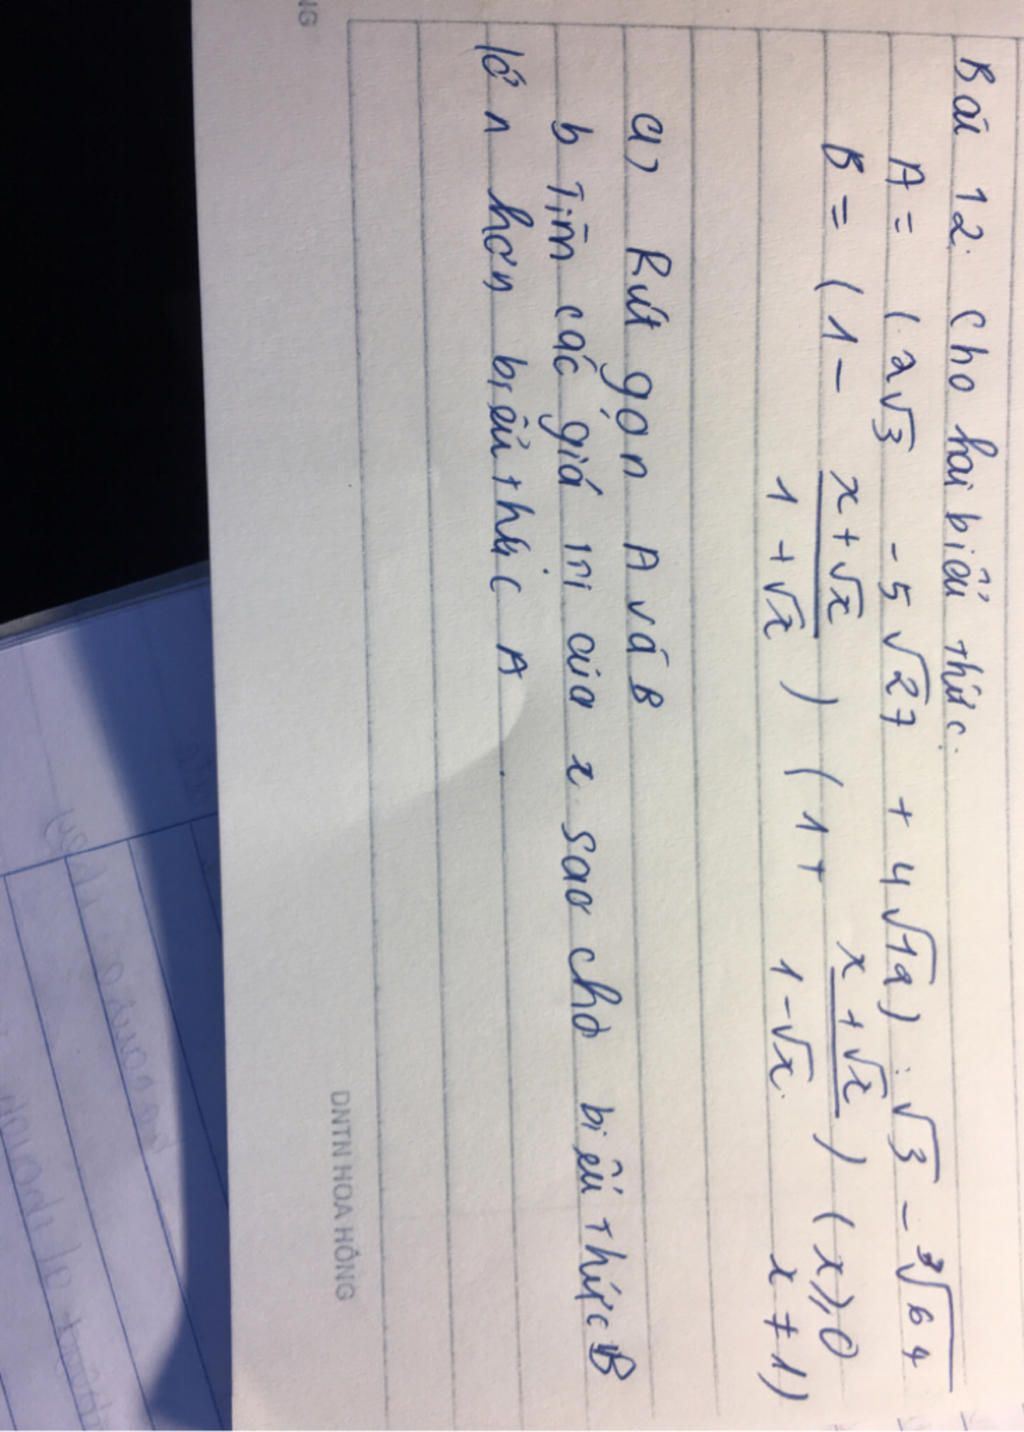 Bài 12. Cho hai biểu thức:
A = (2√3 - 5√27 + 4√12) : √3 - ∛64
B = (1 - (x+√x)/(1+√x)) (1 + (x+√x)/(1-√x)) (x ≥ 0
x ≠ 1)
a) Rút gọn A và B
b Tìm các giá trị của x sao cho biểu thức B
lớn hơn biểu thức A.
DNTN HOA HỒNG
NG